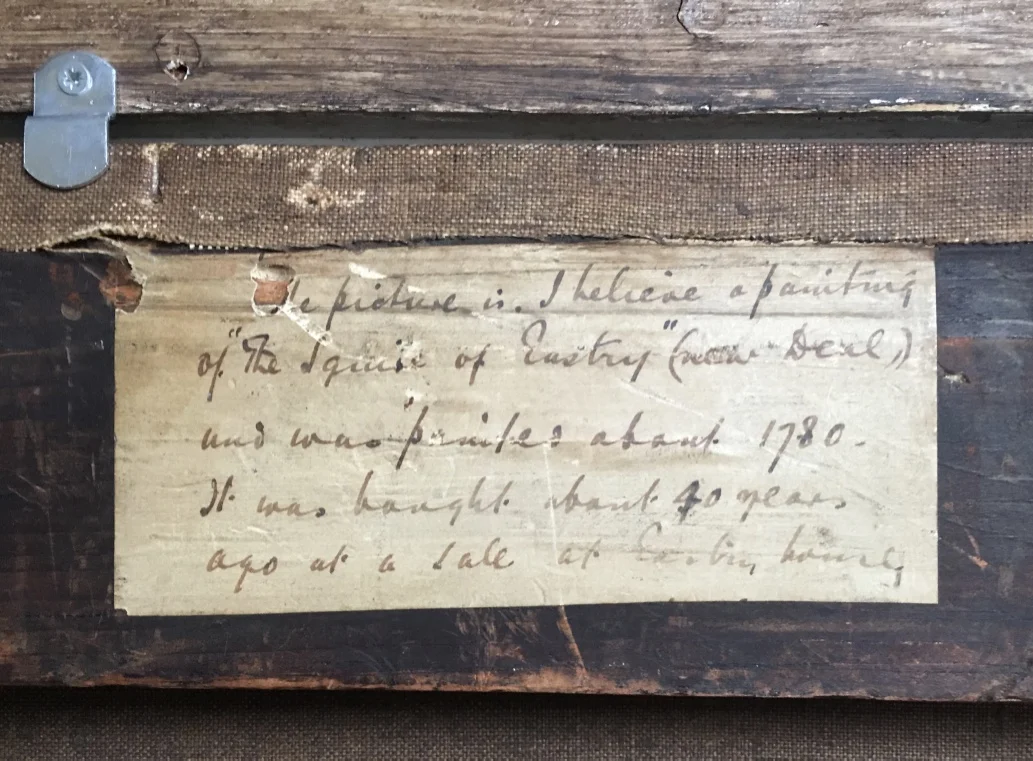 The picture is. I believe a painting
of "The Squire of Eastry" (near Deal,)
and was painted about 1780.
It was bought about 40 years
ago at a sale at Eastry house,